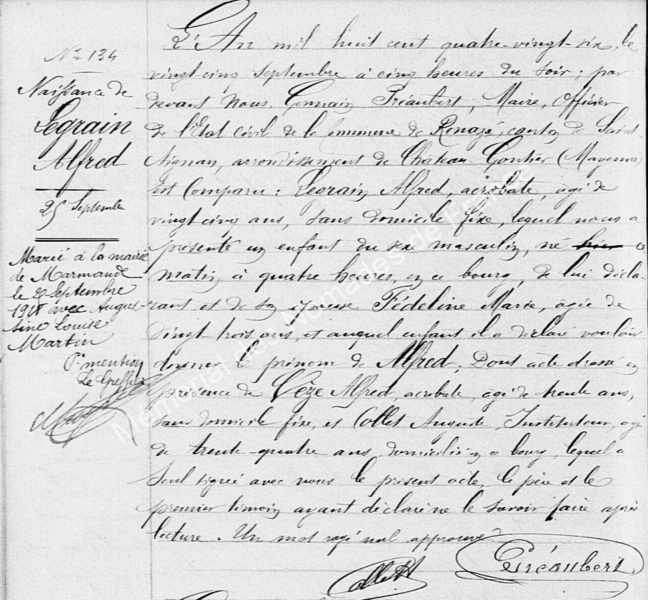 N° 134
Naissance de
Legrain
Alfred
25 Septembre
Marié à la mairie
de Marmande
le 21 Septembre
1918 avec Augus-
tine Louise
Martin
Pr mention
Le Greffier
L'An mil huit cent quatre-vingt-six, le
vingt cinq Septembre à cinq heures du soir ; par
devant Nous, Germain Préaubert, Maire, Officier
de l'Etat civil de la commune de Renazé, canton de Saint
Aignan, arrondissement de Château Gontier (Mayenne)
Est Comparu : Legrain Alfred, acrobate, âgé de
vingt cinq ans, sans domicile fixe, lequel nous a
présenté un enfant du sexe masculin, né hier ce
matin à quatre heures, en ce bourg, de lui décla-
rant et de son épouse Fédeline Marie, âgée de
vingt trois ans, et auquel enfant il a déclaré vouloir
donner le prénom de Alfred ; Dont acte dressé en
présence de Vèze Alfred, acrobate, âgé de trente ans,
sans domicile fixe, et Collet Auguste, Instituteur, âgé
de trente-quatre ans, domicilié en ce bourg, lequel a
seul signé avec nous le présent acte, le père et le
premier témoin ayant déclaré ne le savoir faire après
lecture. Un mot rayé nul approuvé.
Collet
Préaubert
Mémorial des Nomades de France